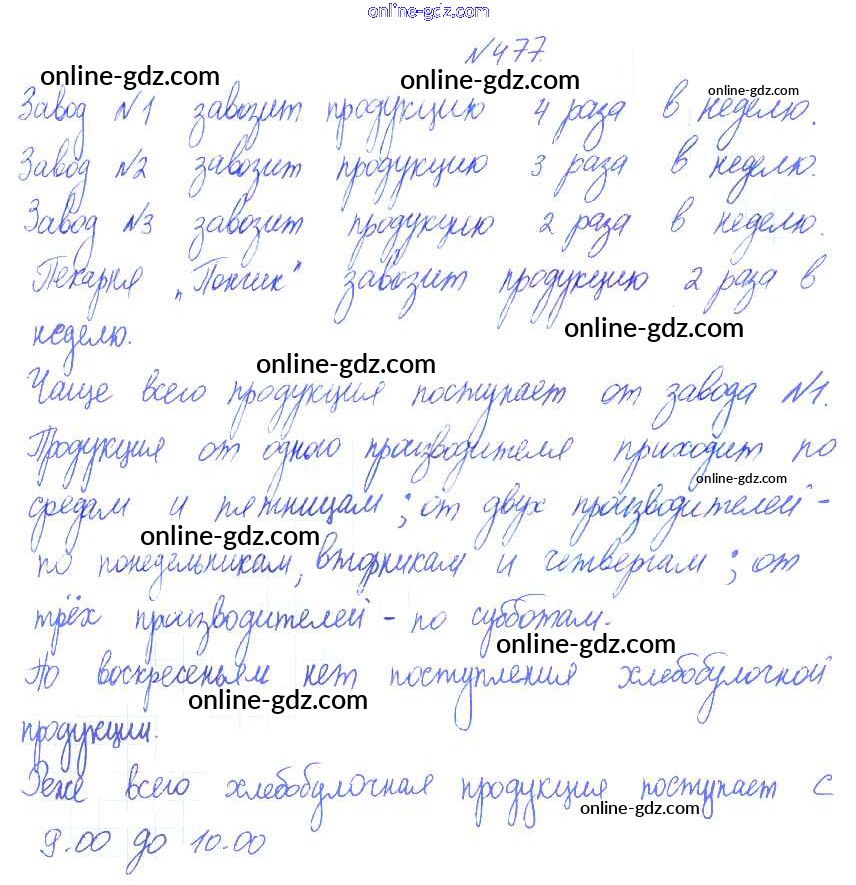 online-gdz.com
№477.
online-gdz.com
online-gdz.com
Завод №1 завозит продукцию 4 раза в неделю.
online-gdz.com
Завод №2 завозит продукцию 3 раза в неделю.
Завод №3 завозит продукцию 2 раза в неделю.
Пекарня „Пончик" завозит продукцию 2 раза в
online-gdz.com
неделю.
online-gdz.com
Чаще всего продукция поступает от завода №1.
Продукция от одного производителя приходит по
online-gdz.com
средам и пятницам; от двух производителей -
online-gdz.com
по понедельникам, вторникам и четвергам; от
трёх производителей - по субботам.
online-gdz.com
По воскресеньям нет поступления хлебобулочной
online-gdz.com
продукции.
Реже всего хлебобулочная продукция поступает с
online-gdz.com
9.00 до 10.00